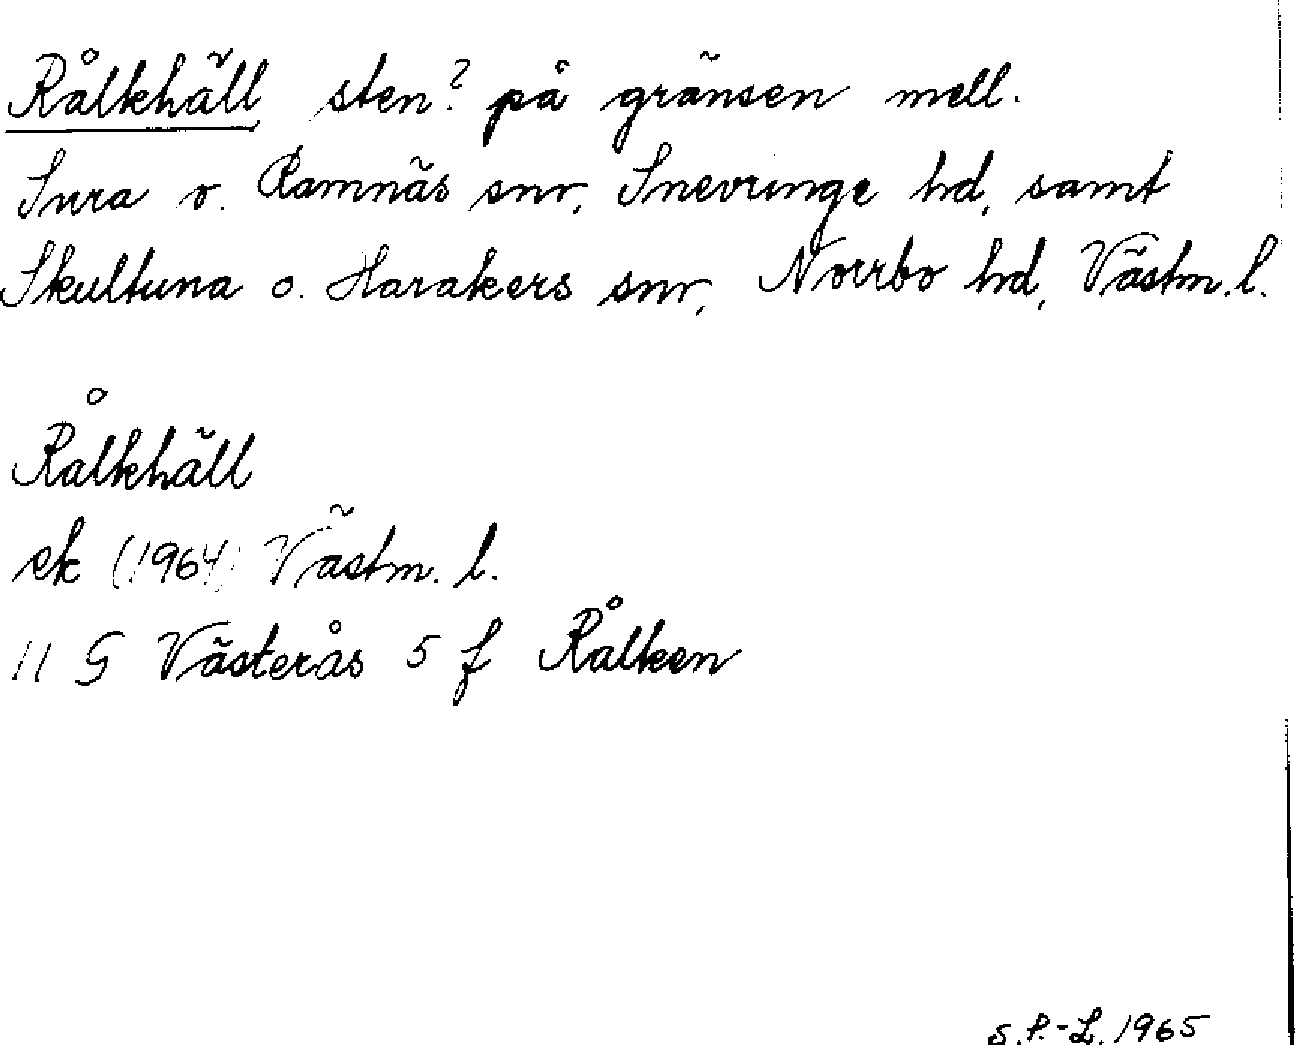 Rålkhäll sten? på gränsen mell.
Sura o. Ramnäs snr, Snevringe hd, samt
Skultuna o. Harakers snr, Norrbo hd, Västm. l.
Rålkhäll
ek (1964) Västm. l.
11 G Västerås 5 f Rålken
S.P.-L. 1965